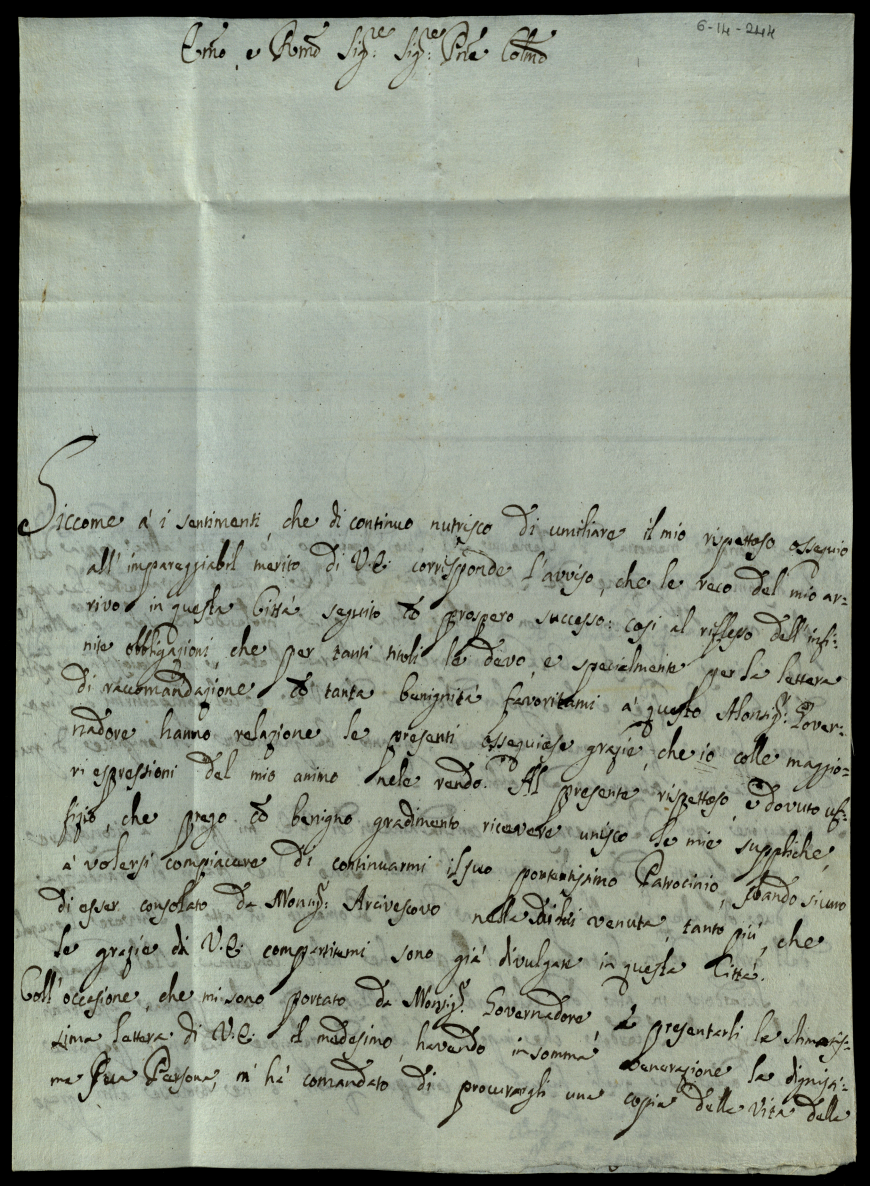 6-14-244
Emo, e Rmo Sig.re Sig.re Pne Colmo
Siccome à i sentimenti, che di continuo nutrisco di umiliare il mio rispettoso ossequio
all' impareggiabil merito di V.E. corrisponde l'avviso, che le reco del mio ar=
rivo in questa Città seguito co prospero successo: così al riflesso dell' infi=
nite obbligazioni, che per tanti titoli le devo, e specialmente per la lettera
di raccomandazione co tanta benignità favoritami à questo Monsig.r Gover=
nadore hanno relazione le presenti ossequiose grazie, che io colle maggio=
ri espressioni del mio animo nele rendo. Al presente rispettoso, e dovuto uf=
fizio, che prego co benigno gradimento ricevere unisco le mie suppliche,
à volersi compiacere di continuarmi il suo potentissimo Patrocinio, stando sicuro
di esser consolato da Monsig.r Arcivescovo nella di lui venuta, tanto più, che
le grazie di V.E. compartitemi sono già divulgate in questa Città.
Coll' occasione, che mi sono portato da Monsig.r Governadore, à presentarli la stimatis=
sima lettera di V.E. il medesimo, havendo in somma venerazione la dignissi=
ma sua Persona, m' hà comandato di procurargli una copia della Vita della